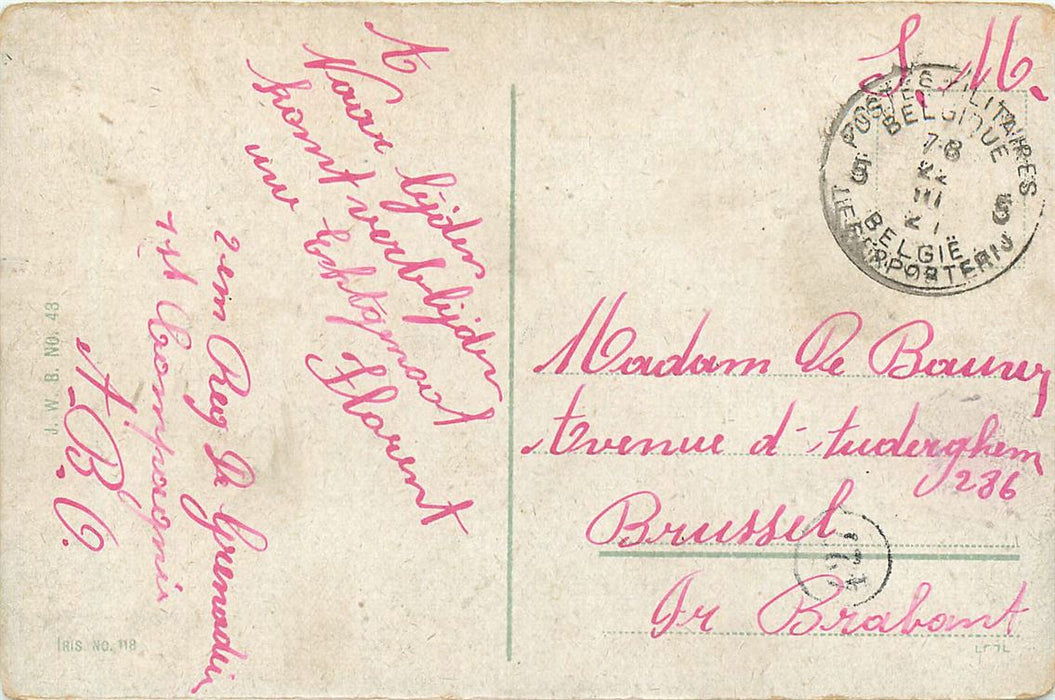 S. M.
POSTES MILITAIRES
BELGIQUE
7-8
22
III
21
5 5
BELGIË
LEGERPOSTERIJ
A
Naar lijden
komt verblijden
uw Echtgenoot
Florent
2em Reg De Grenadier
1st Compagnie
A.B.O.
J. W. B. NO. 43
IRIS. NO. 118
Madam De
Avenue d'Auderghem
286
Brussel
Pr Brabant